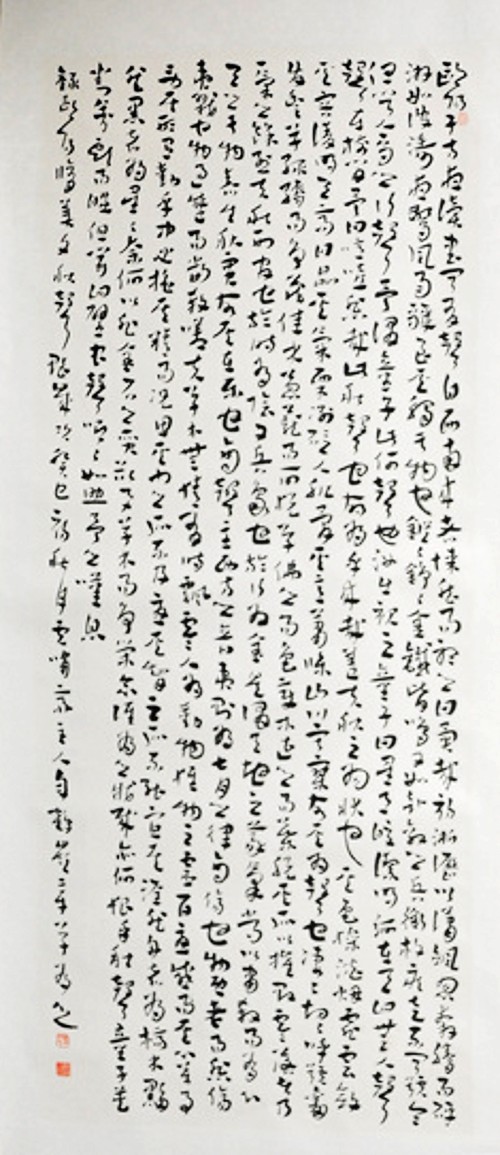 歐陽子方夜讀書聞有聲自西南來者悚然而聽之曰異哉初淅瀝以瀟颯忽奔騰而砰
湃如波濤夜驚風雨驟至其觸于物也鏦鏦錚錚金鐵皆鳴又如赴敵之兵銜枚疾走不聞號令
但聞人馬之行聲予謂童子此何聲也汝出視之童子曰星月皎潔明河在天四無人聲
聲在樹間予曰噫嘻悲哉此秋聲也胡為乎來哉蓋夫秋之為狀也其色慘淡煙霏雲斂
其容清明天高日晶其氣慄冽砭人肌骨其意蕭條山川寂寥故其為聲也淒淒切切呼號奮
發豐草綠縟而爭茂佳木蔥蘢而可悅草拂之而色變木遭之而葉脫其所以摧敗零落者乃
一氣之餘烈夫秋刑官也於時為陰又兵象也於行為金是謂天地之義氣常以肅殺而為心
天之于物春生秋實故其在樂也商聲主西方之音夷則為七月之律商傷也物既老而悲傷
夷戮也物過盛而當殺嗟夫草木無情有時飄零人為動物惟物之靈百憂感其心萬
事勞其形有動乎中必搖其精而況思其力之所不及憂其智之所不能宜其渥然丹者為槁木黟
然黑者為星星奈何以非金石之質欲與草木而爭榮念誰為之戕賊亦何恨乎秋聲童子莫
對垂頭而睡但聞四壁蟲聲唧唧如助予之嘆息
錄歐陽修美文秋聲賦歲次癸巳初秋月雲嘯齋主人草為之